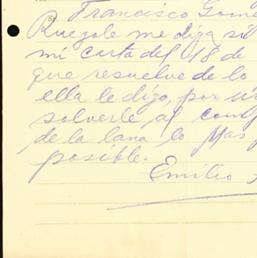 Francisco Gome
Ruegole me diga si
mi carta del 18 de
que resuelve de lo
ella le digo, por
solverle al comp
de la lana lo mas
posible.
Emilio